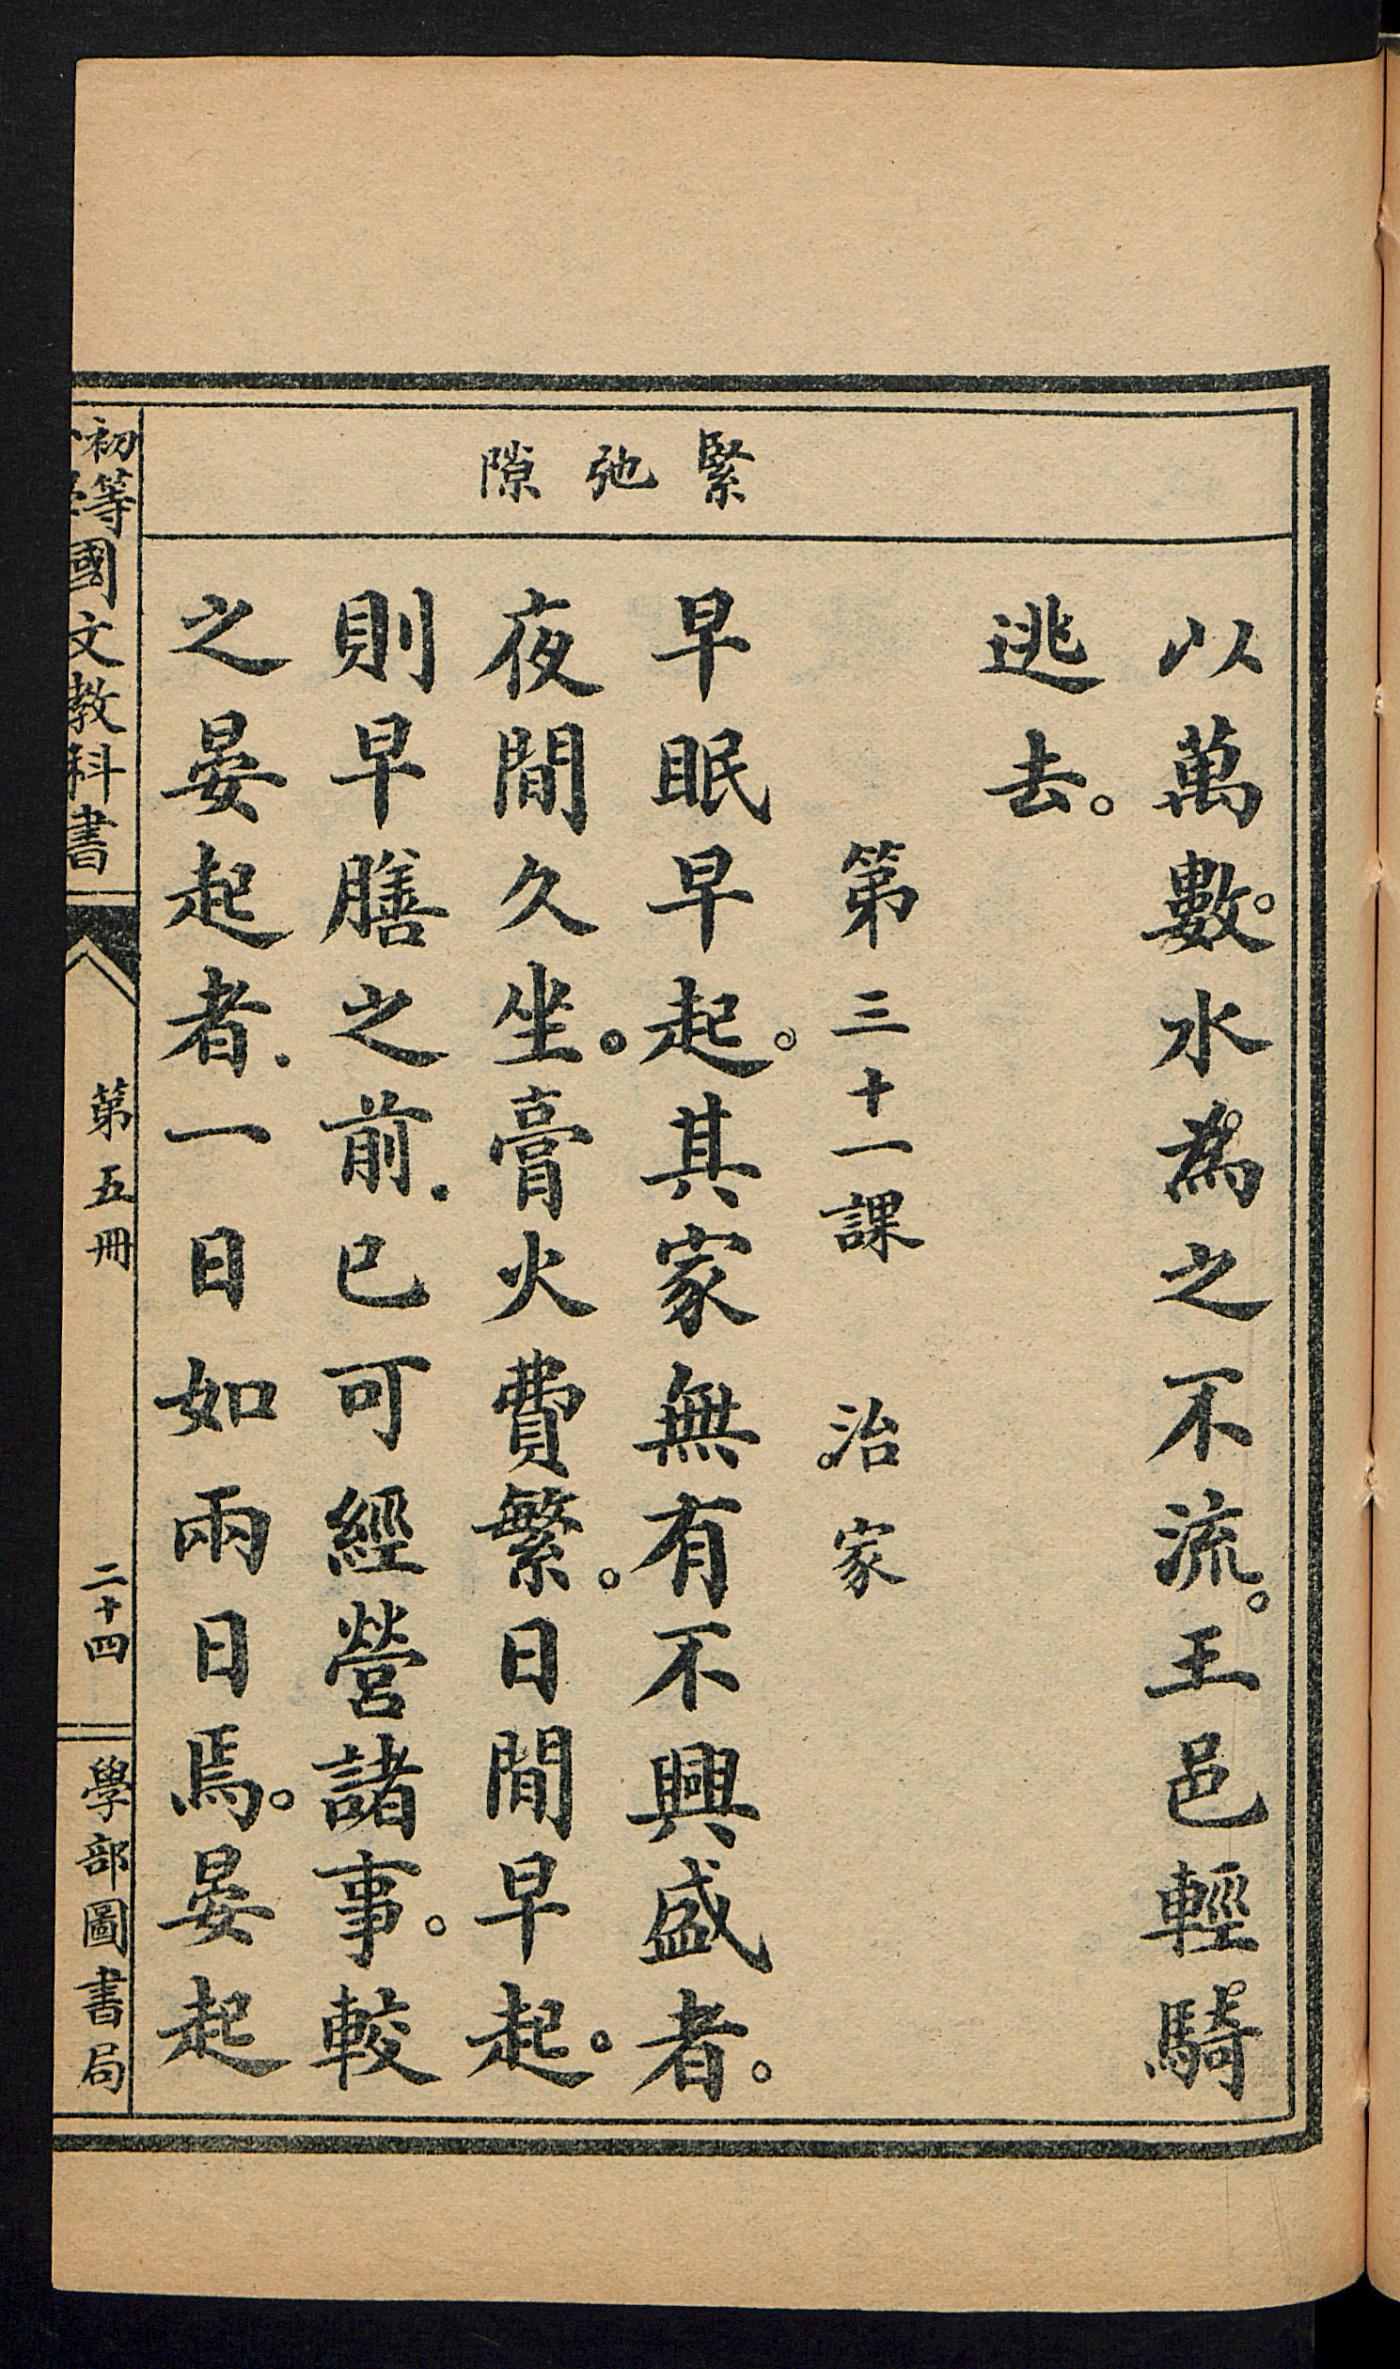 緊弛隙
以萬數。水為之不流。王邑輕騎
逃去。
第三十一課　治家
早眠早起。其家無有不興盛者。
夜間久坐。膏火費繁。日間早起。
則早膳之前.已可經營諸事。較
之晏起者.一日如兩日焉。晏起
初等
國文教科書
第五冊
二十四
學部圖書局